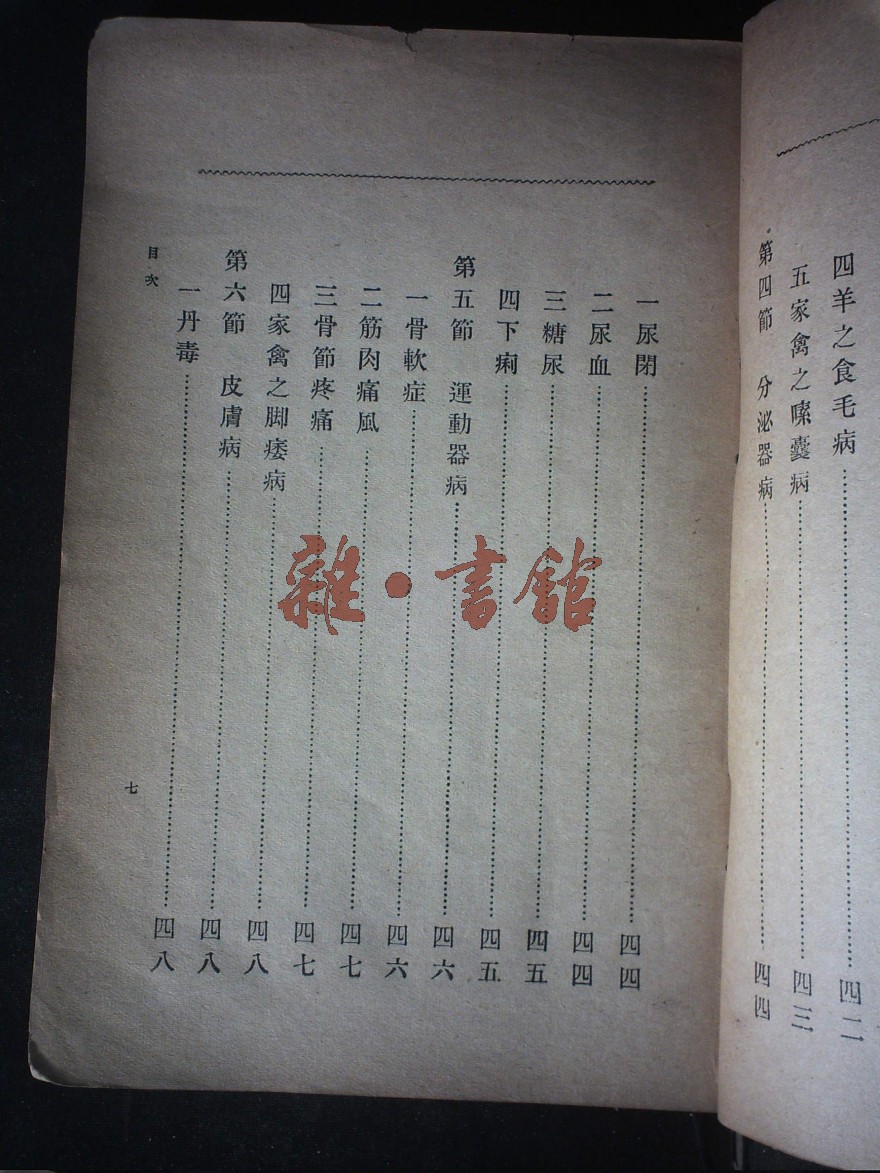 四羊之食毛病……四二
五家禽之嗉囊病……四三
第四節　分泌器病……四四
一尿閉……四四
二尿血……四四
三糖尿……四五
四下痢……四五
第五節　運動器病……四六
一骨軟症……四六
二筋肉痛風……四七
三骨節疼痛……四七
四家禽之脚痿病……四八
第六節　皮膚病……四八
一丹毒……四八
目次
七
雜·書館